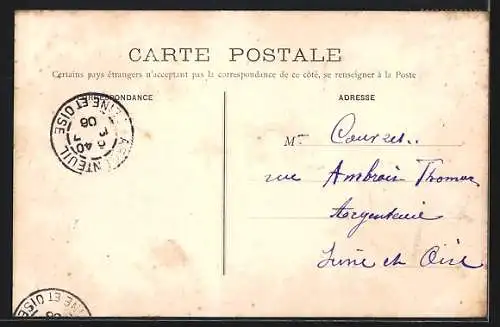 CARTE POSTALE
Certains pays étrangers n'acceptant pas la correspondance de ce côté, se renseigner à la Poste
CORRESPONDANCE
ADRESSE
ARGENTEUIL
6 40
08
SEINE ET OISE
M
rue Ambroise Thomas
Argenteuil
Seine et Oise
SEINE ET OISE
08